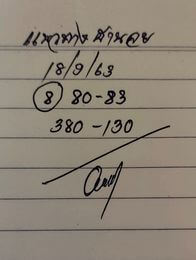 แนวทางฮานอย
18/9/63
8 80-83
380-130